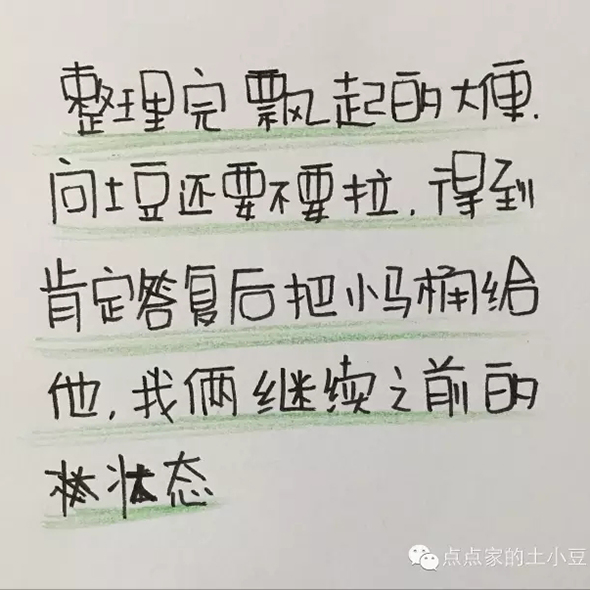 整理完飘起的大便.
向土豆还要不要拉,得到
肯定答复后把小马桶给
他,我俩继续之前的
状态
点点家的土小豆